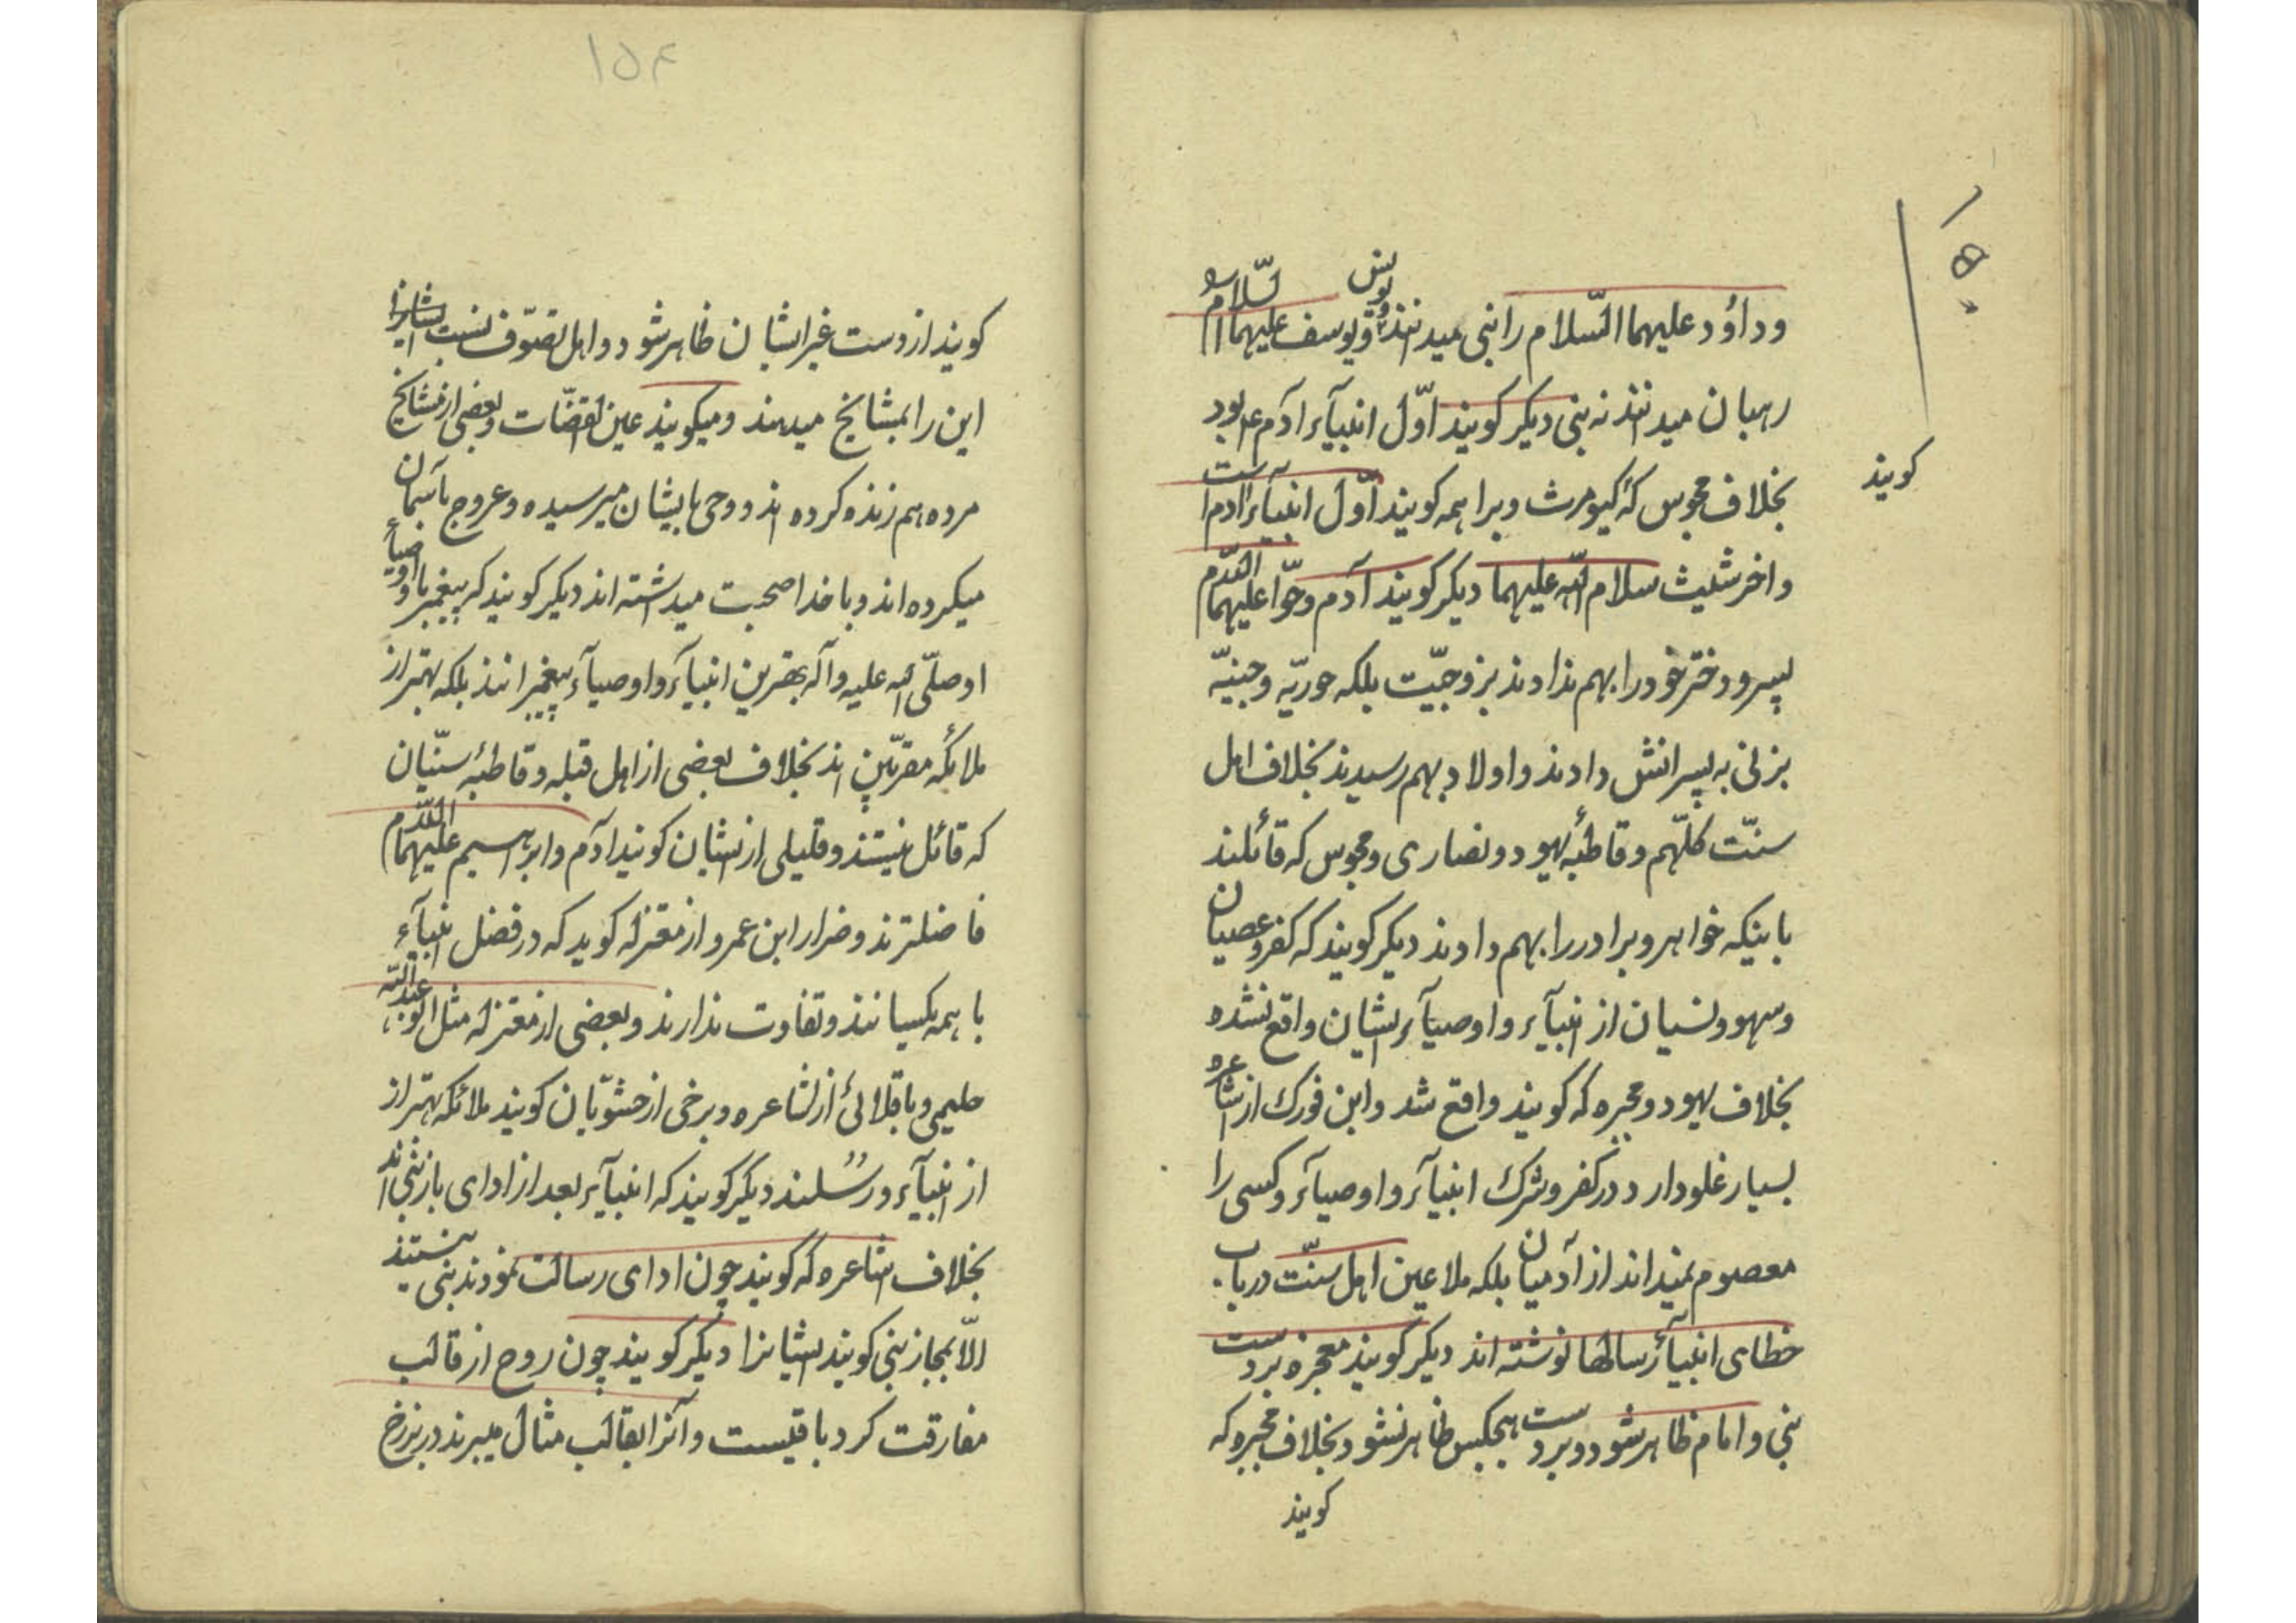 وداؤد علیهما السّلام را نبی میدانند و یونس و یوسف علیهما السّلام را
رهبان میدانند نه نبی دیکر کویند اوّل انبیآء آدم ع بود
کویند
بخلاف مجوس که کیومرث وبراهمه کویند اوّل انبیآء آدم است
واخر شیث سلام اللّه علیهما دیکر کویند آدم وحوّا علیهما السّلام
پسر ودختر خود را بهم ندادند بزوجیّت بلکه حوریّه وجنیّه
بزنی به پسرانش دادند واولاد بهم رسیدند بخلاف اهل
سنّت کلّهم وقاطبهٔ یهود ونصاری ومجوس که قائلند
باینکه خواهر وبرادر را بهم دادند دیکر کویند که کفر وعصیان
وسهو ونسیان از انبیآء واوصیآء ایشان واقع نشده
بخلاف یهود ومجبره که کویند واقع شد وابن فورک از اشاعره
بسیار غلو دارد در کفر وشرک انبیآء واوصیآء وکسی را
معصوم نمیداند از آدمیان بلکه ملاعین اهل سنّت در باب
خطای انبیآء رسالها نوشته اند دیکر کویند معجزه بردست
نبی وامام ظاهر شود وبردست هیچکس ظاهر نشود بخلاف مجبره که
کویند
۱۵۴
کویند از دست غیر ایشان ظاهر شود واهل تصوّف نسبت
این را بمشایخ میدهند ومیکویند عین القضّات وبعضی از مشایخ
مرده هم زنده کرده اند ووحی بایشان میرسیده وعروج بآسمان
میکرده اند وبا خدا صحبت میداشته اند دیکر کویند که پیغمبر ما واوصیآء
او صلّی اللّه علیه وآله بهترین انبیآء واوصیآء پیغمبرانند بلکه بهتر از
ملائکه مقرّبین اند بخلاف بعضی از اهل قبله وقاطبهٔ سنّیان
که قائل نیستند وقلیلی از ایشان کویند آدم وابراهیم علیهما السّلام
فاضلترند وضرار ابن عمرو از معتزله کوید که در فضل انبیآء
با همه یکسانند وتفاوت ندارند وبعضی از معتزله مثل ابو عبداللّه
حلیمی وباقلانی از اشاعره وبرخی از حشویّان کویند ملائکه بهتر از
از انبیآء ورسلند دیکر کویند که انبیآء بعد از ادای باز نبی اند
بخلاف اشاعره که کویند چون ادای رسالت نمودند نبی نیستند
الّا بمجاز نبی کویند ایشانرا دیکر کویند چون روح از قالب
مفارقت کرد باقیست وآنرا بقالب مثال میبرند در برزخ